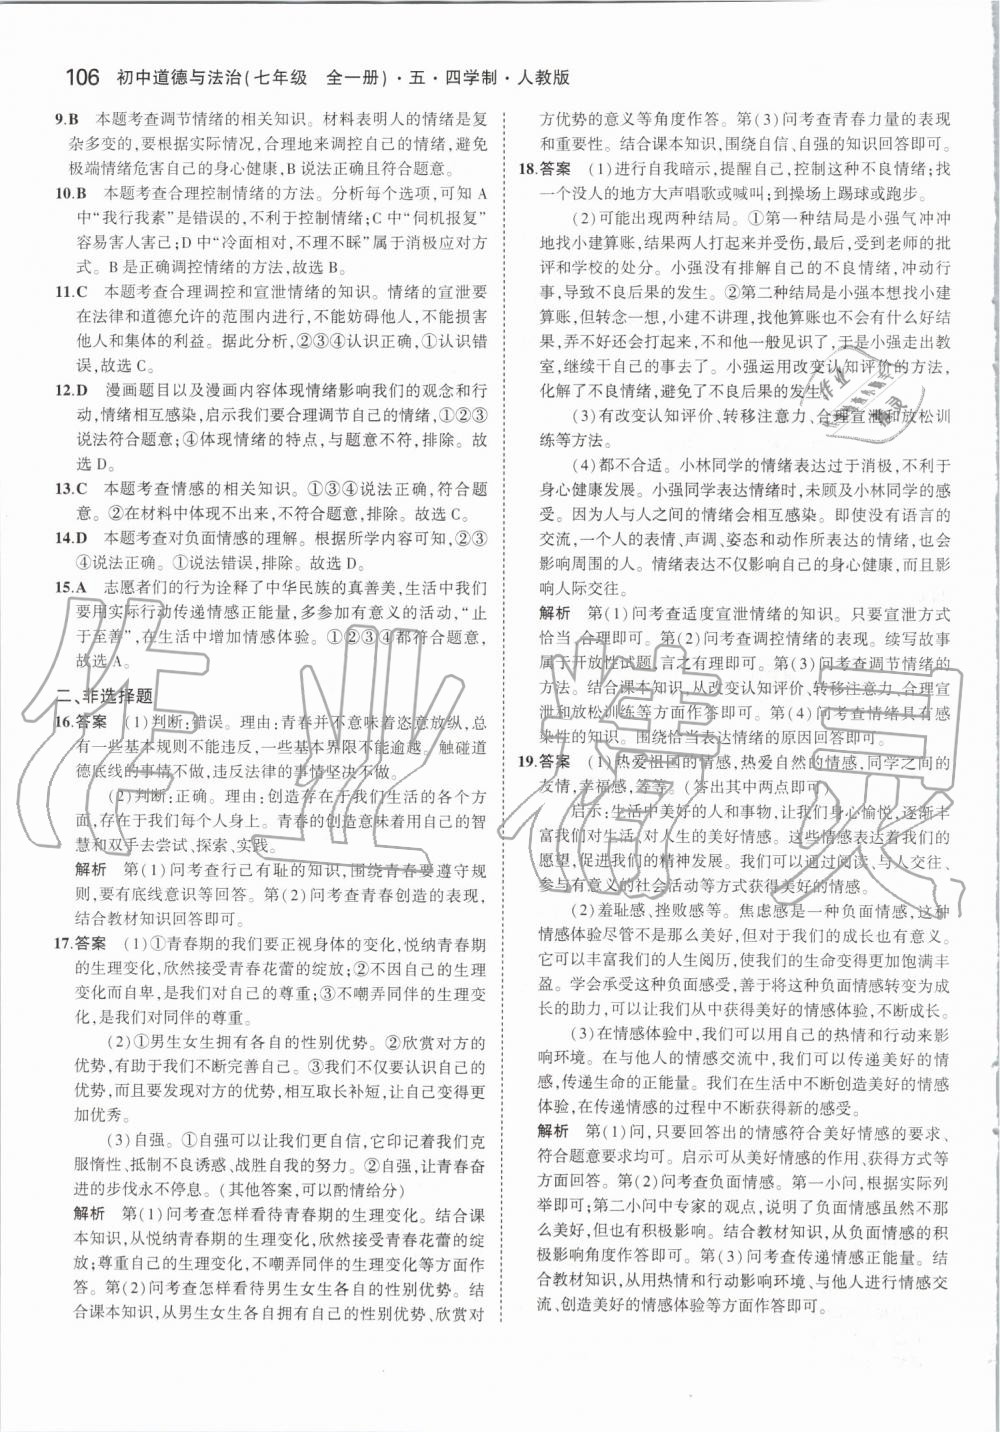 106 初中道德与法治(七年级　全一册)·五·四学制·人教版
9.B　本题考查调节情绪的相关知识。材料表明人的情绪是复
杂多变的,要根据实际情况,合理地来调控自己的情绪,避免
极端情绪危害自己的身心健康,B说法正确且符合题意。
10.B　本题考查合理控制情绪的方法。分析每个选项,可知A
中“我行我素”是错误的,不利于控制情绪;C中“伺机报复”
容易害人害己;D中“冷面相对,不理不睬”属于消极应对方
式。B是正确调控情绪的方法,故选B。
11.C　本题考查合理调控和宣泄情绪的知识。情绪的宣泄要
在法律和道德允许的范围内进行,不能妨碍他人,不能损害
他人和集体的利益。据此分析,②③④认识正确,①认识错
误,故选C。
12.D　漫画题目以及漫画内容体现情绪影响我们的观念和行
动,情绪相互感染,启示我们要合理调节自己的情绪,①②③
说法符合题意;④体现情绪的特点,与题意不符,排除。故
选D。
13.C　本题考查情感的相关知识。①③④说法正确,符合题
意。②在材料中体现不出来,不符合题意,排除。故选C。
14.D　本题考查对负面情感的理解。根据所学内容可知,②③
④说法正确。①说法错误,排除。故选D。
15.A　志愿者们的行为诠释了中华民族的真善美,生活中我们
要用实际行动传递情感正能量,多参加有意义的活动,“止
于至善”,在生活中增加情感体验。①②③④都符合题意,
故选A。
二、非选择题
16.答案　(1)判断:错误。理由:青春并不意味着恣意放纵,总
有一些基本规则不能违反,一些基本界限不能逾越。触碰道
德底线的事情不做,违反法律的事情坚决不做。
(2)判断:正确。理由:创造存在于我们生活的各个方
面,存在于我们每个人身上。青春的创造意味着用自己的智
慧和双手去尝试、探索、实践。
解析　第(1)问考查行己有耻的知识,围绕青春要遵守规
则,要有底线意识等回答。第(2)问考查青春创造的表现,
结合教材知识回答即可。
17.答案　(1)①青春期的我们要正视身体的变化,悦纳青春期
的生理变化,欣然接受青春花蕾的绽放;②不因自己的生理
变化而自卑,是我们对自己的尊重;③不嘲弄同伴的生理变
化,是我们对同伴的尊重。
(2)①男生女生拥有各自的性别优势。②欣赏对方的
优势,有助于我们不断完善自己。③我们不仅要认识自己的
优势,而且要发现对方的优势,相互取长补短,让自己变得更
加优秀。
(3)自强。①自强可以让我们更自信,它印记着我们克
服惰性、抵制不良诱惑、战胜自我的努力。②自强,让青春奋
进的步伐永不停息。(其他答案,可以酌情给分)
解析　第(1)问考查怎样看待青春期的生理变化。结合课
本知识,从悦纳青春期的生理变化,欣然接受青春花蕾的绽
放,不因自己的生理变化而自卑,不嘲弄同伴的生理变化等方面作答。
答。第(2)问考查怎样看待男生女生各自的性别优势。结
合课本知识,从男生女生各自拥有自己的性别优势,欣赏对
方优势的意义等角度作答。第(3)问考查青春力量的表现
和重要性。结合课本知识,围绕自信、自强的知识回答即可。
18.答案　(1)进行自我暗示,提醒自己,控制这种不良情绪;找
一个没人的地方大声唱歌或喊叫;到操场上踢球或跑步。
(2)可能出现两种结局。①第一种结局是小强气冲冲
地找小建算账,结果两人打起来并受伤,最后,受到老师的批
评和学校的处分。小强没有排解自己的不良情绪,冲动行
事,导致不良后果的发生。②第二种结局是小强本想找小建
算账,但转念一想,小建不讲理,找他算账也不会有什么好结
果,弄不好还要打起来,和他一般见识干什么,于是小强走出教
室,继续干自己的事去了。小强运用改变认知评价的方法,
化解了不良情绪,避免了不良后果的发生。
(3)有改变认知评价、转移注意力、合理宣泄和放松训
练等方法。
(4)都不合适。小林同学的情绪表达过于消极,不利于
身心健康发展。小强同学表达情绪时,没有顾及小林同学的感
受。因为人与人之间的情绪会相互感染。即使没有语言的
交流,一个人的表情、声调、姿态和动作所表达的情绪,也会
影响周围的人。情绪表达不仅与自己的身心健康有关,而且影
响人际交往。
解析　第(1)问考查适度宣泄情绪的知识。只要宣泄方式
恰当,合理即可。第(2)问考查调控情绪的表现。续写故事
属于开放性试题,言之有理即可。第(3)问考查调节情绪的
方法。结合课本知识,从改变认知评价、转移注意力、合理宣
泄和放松训练等方面作答即可。第(4)问考查情绪具有感
染性的知识。围绕恰当表达情绪的原因回答即可。
19.答案　(1)热爱祖国的情感,热爱自然的情感,同学之间的
友情,幸福感,等等。(答出其中两点即可)
启示:生活中美好的人和事物,让我们身心愉悦,逐渐丰
富我们对生活、对人生的美好情感。这些情感表达着我们的
愿望,促进我们的精神发展。我们可以通过阅读、与人交往、
参与有意义的社会活动等方式获得美好的情感。
(2)羞耻感、挫败感等。焦虑感是一种负面情感,这种
情感体验尽管不是那么美好,但对于我们的成长也有意义。
它可以丰富我们的人生阅历,使我们的生命变得更加饱满丰
盈。学会承受这种负面感受,善于将这种负面情感转变为成
长的助力,可以让我们从中获得美好的情感体验,不断成长。
(3)在情感体验中,我们可以用自己的热情和行动来影
响环境。在与他人的情感交流中,我们可以传递美好的情
感,传递生命的正能量。我们在生活中不断创造美好的情感
体验,在传递情感的过程中不断获得新的感受。
解析　第(1)问,只要回答出的情感符合美好情感的要求、
符合题意要求均可。启示可从美好情感的作用、获得美好情感的
方面回答。第(2)问考查负面情感。第一小问,根据实际列
举即可;第二小问中专家的观点,说明了负面情感虽然不
那么美好,但也有积极影响。结合教材知识,从负面情感的积
极影响角度作答即可。第(3)问考查传递情感正能量。结
合教材知识,从用热情和行动影响环境、与他人进行情感交
流、创造美好的情感体验等方面作答即可。
作业精灵